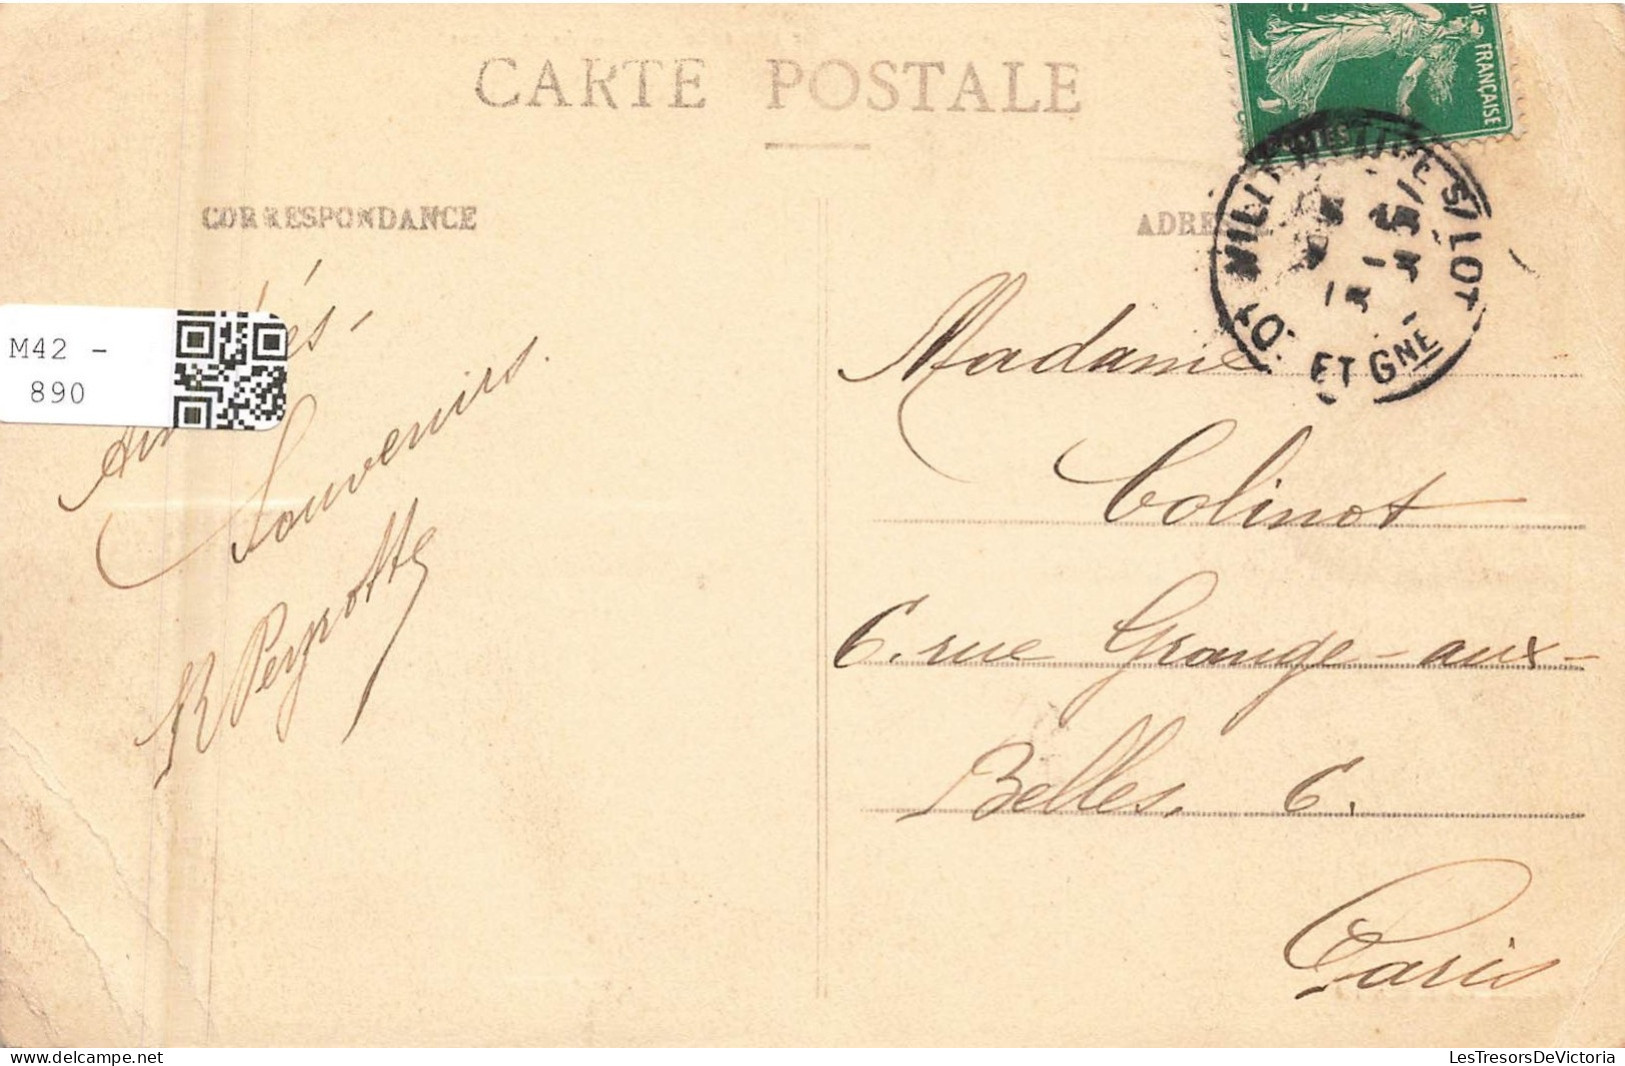 CARTE POSTALE
CORRESPONDANCE
ADRESSE
FRANÇAISE
S/LOT
ET GNE
M42 -
890
Souvenirs.
R Peyrotte
Madame
Colinot
6. rue Grange-aux-
Belles. 6.
Paris
delcampe.net
LesTresorsDeVictoria